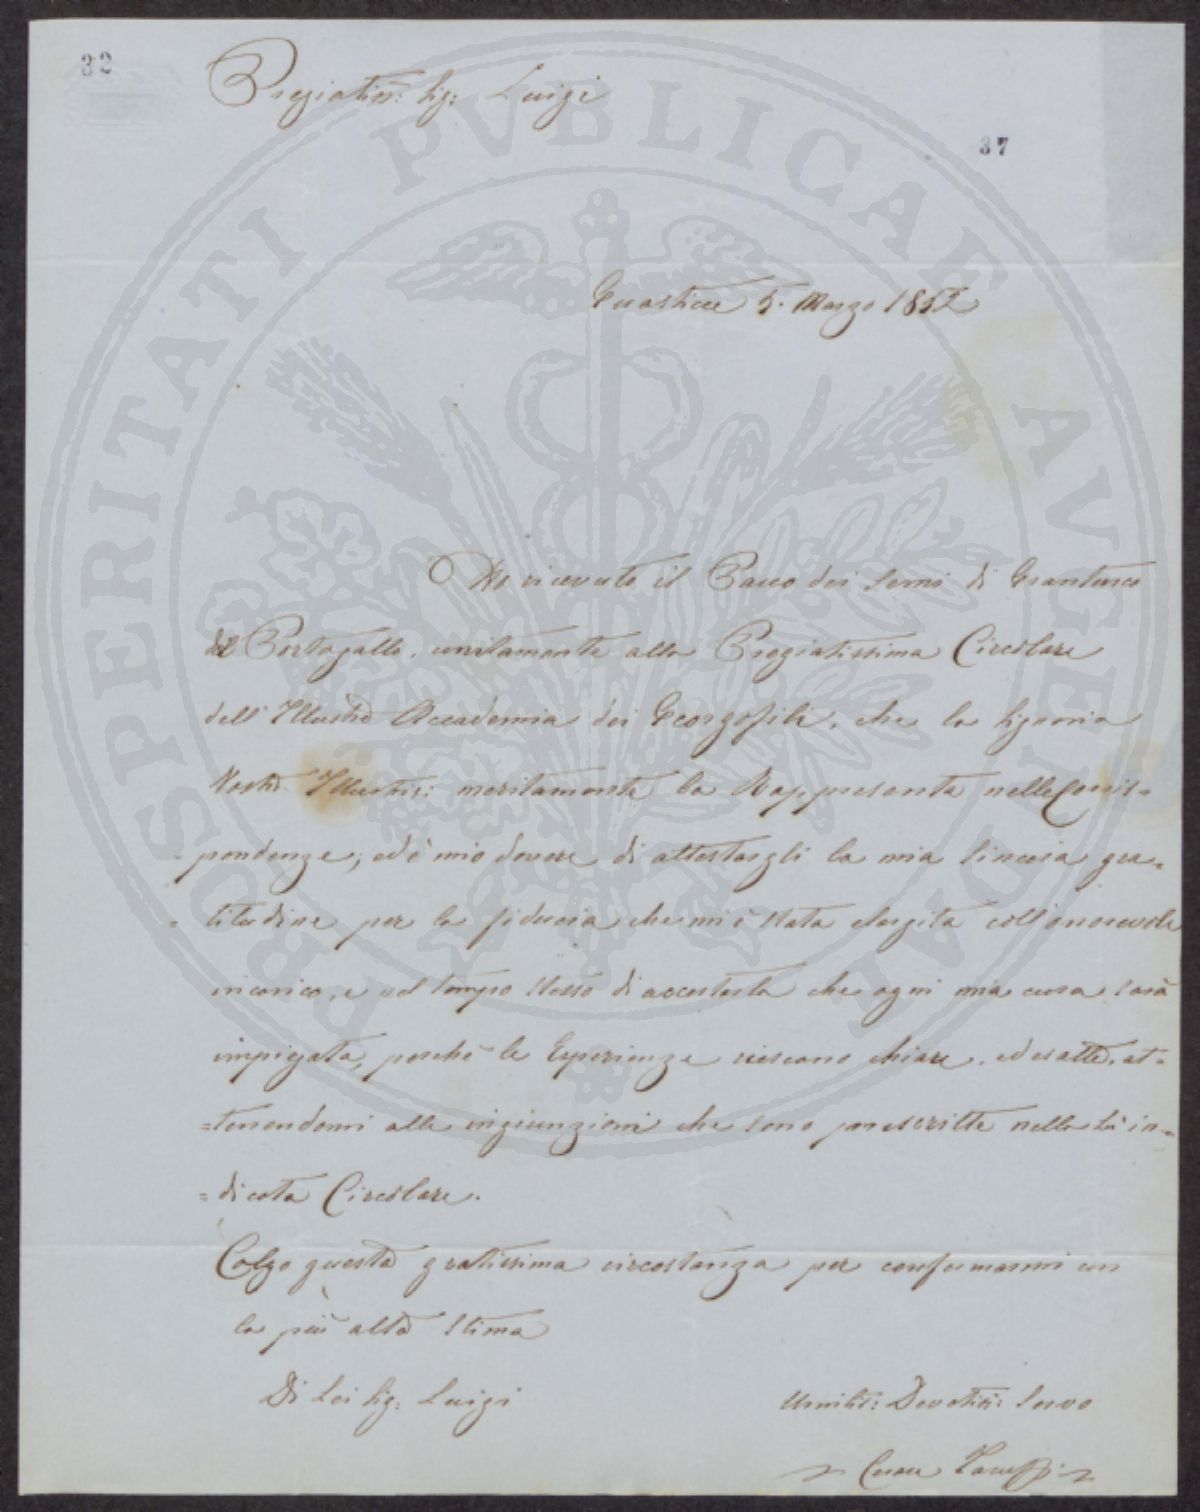 32
Pregiatiss: Sig: Luigi
37
Guasticce 5. Marzo 1852
Ho ricevuto il Pacco dei Semi di Granturco
del Portogallo, unitamente alla Pregiatissima Circolare
dell'Illustre Accademia dei Georgofili, che la Signoria
Vostra Illustris: meritamente la Rappresenta nelle Corris=
pondenze; ed è mio dovere di attestargli la mia sincera gra=
=titudine per la fiducia che mi è stata elargita coll'onorevole
incarico, e nel tempo stesso di accertarla che ogni mia cura sarà
impiegata, perchè le Esperienze riescano chiare, ed esatte, at=
=tenendomi alle ingiunzioni che sono prescritte nella su in=
=dicata Circolare.
Colgo questa gratissima circostanza per confermarmi con
la più alta stima
Di Lei Sig: Luigi
Umilis: Devotis: Servo
Cesare
PROSPERITATI PVBLICAE AVGENDAE